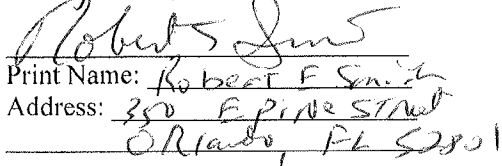 Robert Smith
Print Name: Robert E Smith
Address: 350 E Pine Street
Orlando, FL 32801